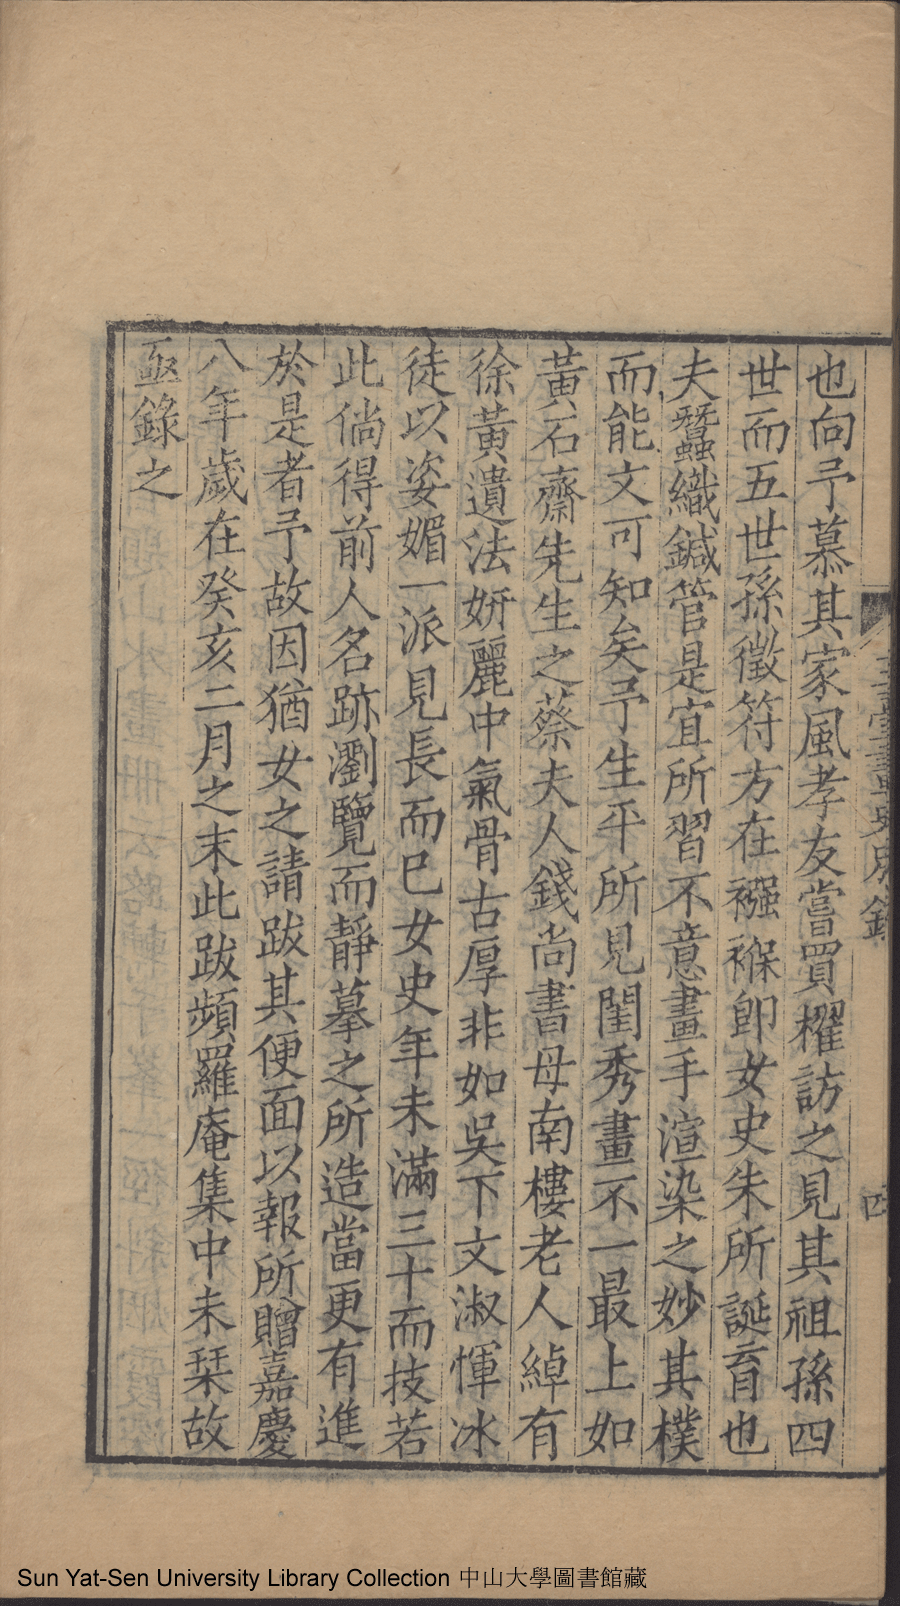 也向予慕其家風孝友嘗買櫂訪之見其祖孫四
世而五世孫徵符方在襁褓卽女史朱所誕育也
夫蠶織鍼管是宜所習不意畫手渲染之妙其樸
而能文可知矣予生平所見閨秀畫不一最上如
黃石齋先生之蔡夫人錢尚書母南樓老人綽有
徐黃遺法妍麗中氣骨古厚非如吳下文淑惲冰
徒以姿媚一派見長而已女史年未滿三十而技若
此倘得前人名跡瀏覽而靜摹之所造當更有進
於是者予故因猶女之請跋其便面以報所贈嘉慶
八年歲在癸亥二月之末此跋頻羅庵集中未栞故
亟錄之
玉臺畫史別錄
四
Sun Yat-Sen University Library Collection 中山大學圖書館藏